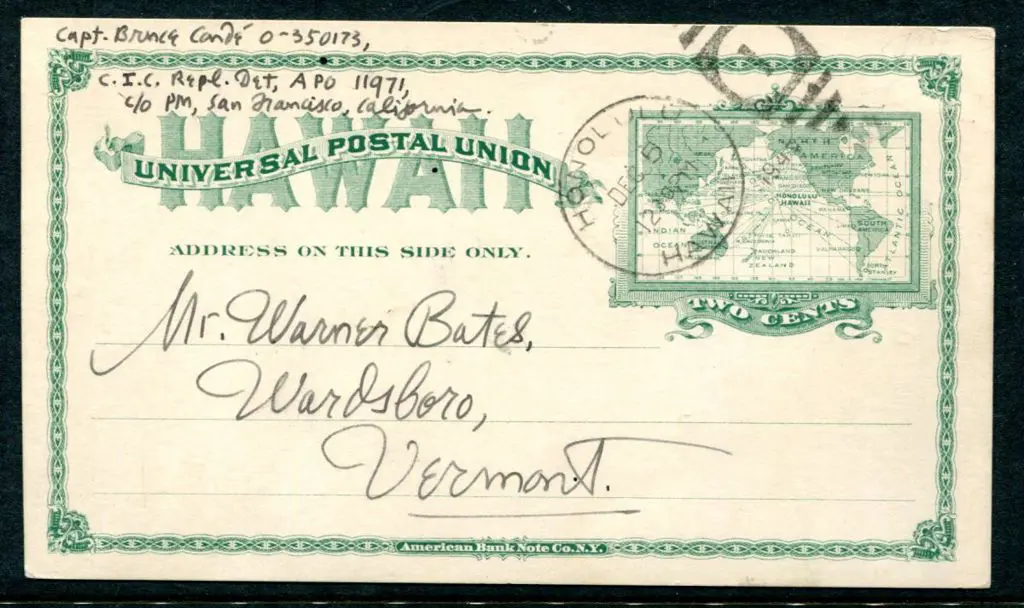 Capt. Bruce Condé O-350173,
C.I.C. Repl. Det, APO 11971,
c/o PM, San Francisco, California.
HAWAII
UNIVERSAL POSTAL UNION
ADDRESS ON THIS SIDE ONLY.
HONOLULU
DEC 5
HAWAII
1
NORTH
AMERICA
HONOLULU
HAWAII
INDIAN
OCEAN
OCEAN
SOUTH
AMERICA
ATLANTIC OCEAN
VALPARAISO
NEW
ZEALAND
STANLEY
TWO CENTS
Mr. Warner Bates,
Wardsboro,
Vermont.
American Bank Note Co. N.Y.